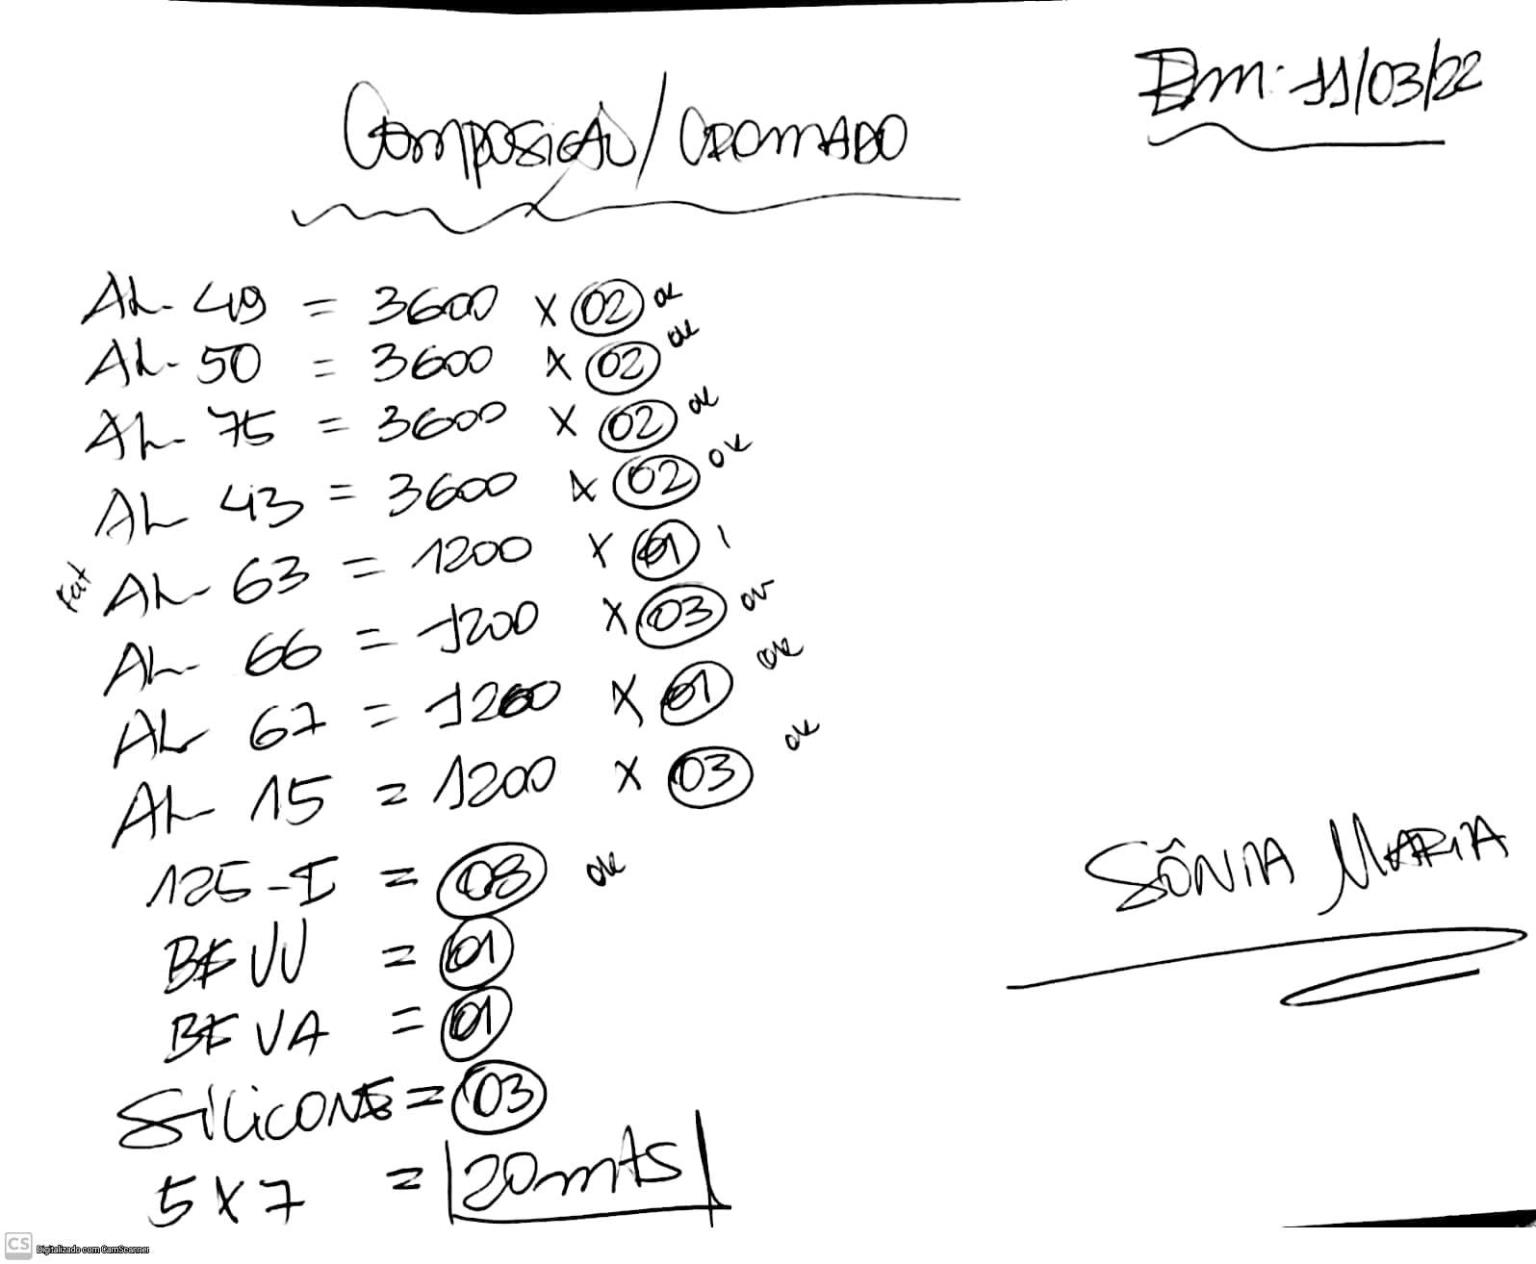 Em: 11/03/22
Composição/CROMADO
AL- 49 = 3600 x 02 ok
AL- 50 = 3600 x 02 ok
AL- 75 = 3600 x 02 ok
AL 43 = 3600 x 02 ok
AL- 63 = 1200 x 01
AL- 66 = 1200 x 03 ok
AL 67 = 1200 x 01 ok
AL 15 = 1200 x 03 ok
125-I = 03 ok
BF VV = 01
BF VA = 01
SÔNIA MARIA
SILICONE = 03
5 x 7 = 20mts
CS Digitalizado com CamScanner